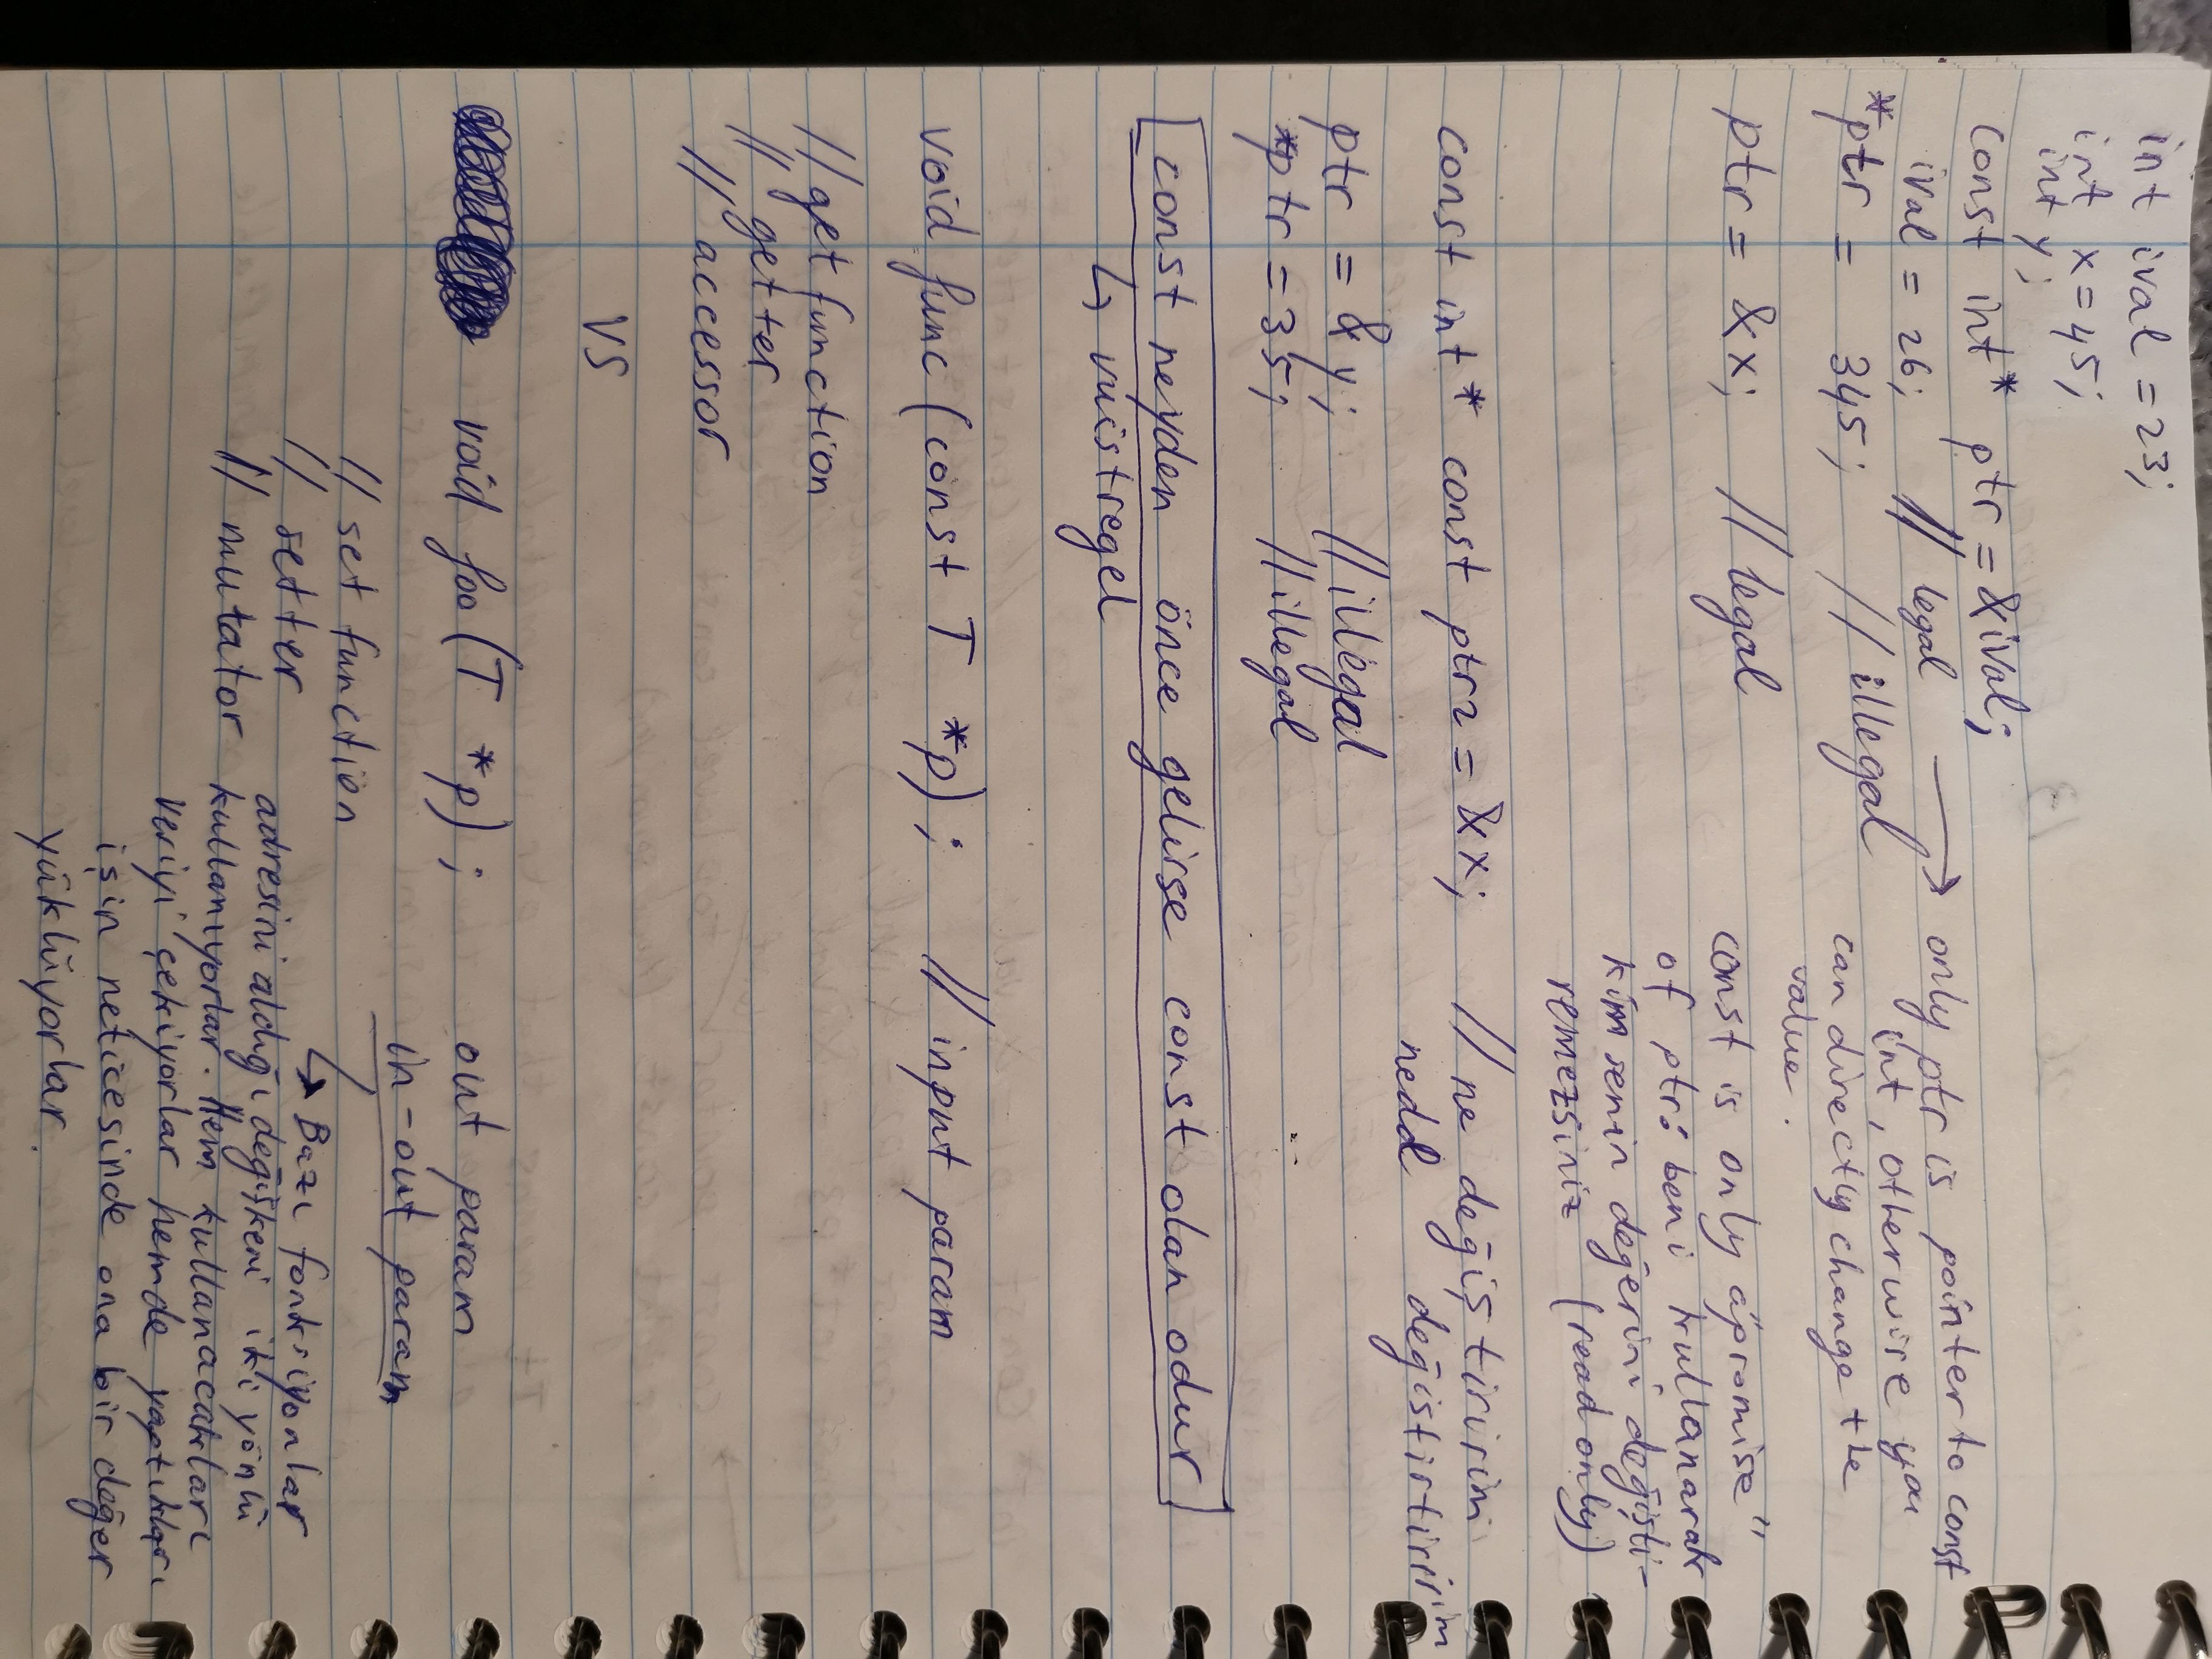 int ival = 23;
int x = 45;
int y;
const int* ptr = &ival;
ival = 26; // legal → only ptr is pointer to const
int, otherwise you
*ptr = 345; // illegal
can directly change the
value.
ptr = &x; // legal
const is only a "promise"
of ptr: beni kullanarak
kimsenin değerini değişti-
remezsiniz (read only)
const int* const ptr2 = &x; // ne değiştiririm
nedd değistirtiririm
ptr = &y; // illegal
*ptr = 35; // illegal
const neyden önce gelirse const olan odur
↳ vuistregel
void func (const T *p); // input param
// get function
// getter
// accessor
VS
void foo (T *p); out param
in-out param
// set function
// setter
// mutator
↳ Bazı fonksiyonlar
adresini aldığı değişkeni iki yönlü
kullanıyorlar. Hem kullanacakları
veriyi çekiyorlar hemde yaptıkları
işin neticesinde ona bir değer
yüklüyorlar.